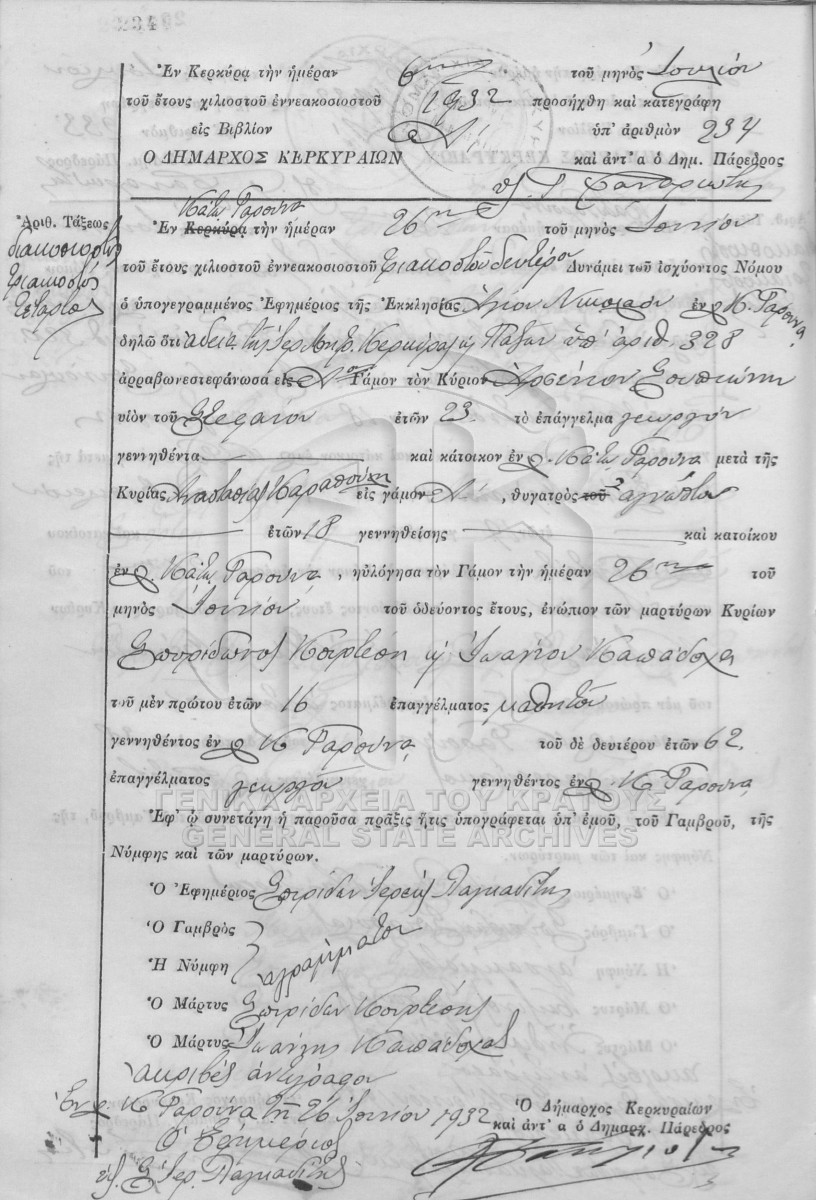 234
Ἐν Κερκύρᾳ τὴν ἡμέραν 6ην τοῦ μηνὸς Ἰουλίου
τοῦ ἔτους χιλιοστοῦ ἐννεακοσιοστοῦ 1932 προσήχθη καὶ κατεγράφη
εἰς Βιβλίον Α! ὑπ' ἀριθμὸν 234
Ο ΔΗΜΑΡΧΟΣ ΚΕΡΚΥΡΑΙΩΝ καὶ ἀντ' α ὁ Δημ. Πάρεδρος
Κάτω Γαρούνα
Ἀριθ. Τάξεως
διακοσιοστὸς
τριακοστὸς
τέταρτος
Ἐν Κερκύρᾳ τὴν ἡμέραν 26ην τοῦ μηνὸς Ἰουνίου
τοῦ ἔτους χιλιοστοῦ ἐννεακοσιοστοῦ τριακοστοῦ δευτέρου Δυνάμει τοῦ ἰσχύοντος Νόμου
ὁ ὑπογεγραμμένος Ἐφημέριος τῆς Ἐκκλησίας Ἁγίου Νικολάου ἐν Κ. Γαρούνα
δηλῶ ὅτι ἀδείᾳ τῆς Ἱερ. Μητ. Κερκύρας ὑπ' ἀριθ. 328
ἀρραβωνεστεφάνωσα εἰς Αον Γάμον τὸν Κύριον Ἀρσένιον
υἱὸν τοῦ Στεφάνου ἐτῶν 23 τὸ ἐπάγγελμα γεωργὸν
γεννηθέντα καὶ κάτοικον ἐν Κάτω Γαρούνα μετὰ τῆς
Κυρίας Ἀναστασίας εἰς γάμον Α!, θυγατρὸς τοῦ ἀγνώστου
ἐτῶν 18 γεννηθείσης καὶ κατοίκου
ἐν Κάτω Γαρούνα, ηὐλόγησα τὸν Γάμον τὴν ἡμέραν 26ην τοῦ
μηνὸς Ἰουνίου τοῦ ὁδεύοντος ἔτους, ἐνώπιον τῶν μαρτύρων Κυρίων
Σπυρίδωνος Κουρτέση Ἰωάννου Καπάδοχα
τοῦ μὲν πρώτου ἐτῶν 16 ἐπαγγέλματος μαθητοῦ
γεννηθέντος ἐν Κ. Γαρούνα τοῦ δὲ δευτέρου ἐτῶν 62,
ἐπαγγέλματος γεωργοῦ γεννηθέντος ἐν Κ. Γαρούνα
ΓΕΝΙΚΑ ΑΡΧΕΙΑ ΤΟΥ ΚΡΑΤΟΥΣ
GENERAL STATE ARCHIVES
Ἐφ' ᾧ συνετάγη ἡ παροῦσα πρᾶξις ἥτις ὑπογράφεται ὑπ' ἐμοῦ, τοῦ Γαμβροῦ, τῆς
Νύμφης καὶ τῶν μαρτύρων.
Ὁ Ἐφημέριος Σπυρίδων Ἱερεὺς
Ὁ Γαμβρὸς
ἀγράμματοι
Ἡ Νύμφη
Ὁ Μάρτυς Σπυρίδων Κουρτέσης
Ὁ Μάρτυς Ἰωάννης Καπάδοχας
ἀκριβὲς ἀντίγραφον
Ἐν Κ. Γαρούνα τῇ 26 Ἰουνίου 1932
Ὁ Ἐφημέριος
Ὁ Δήμαρχος Κερκυραίων
καὶ ἀντ' α ὁ Δημαρχ. Πάρεδρος